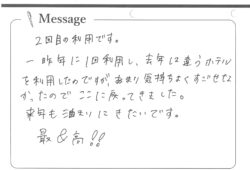 Message
2回目の利用です。
一昨年に1回利用し、去年は違うホテル
を利用したのですが、あまり気持ちよくすごせな
かったので ここに戻ってきました。
来年も泊まりにきたいです。
最&高!!